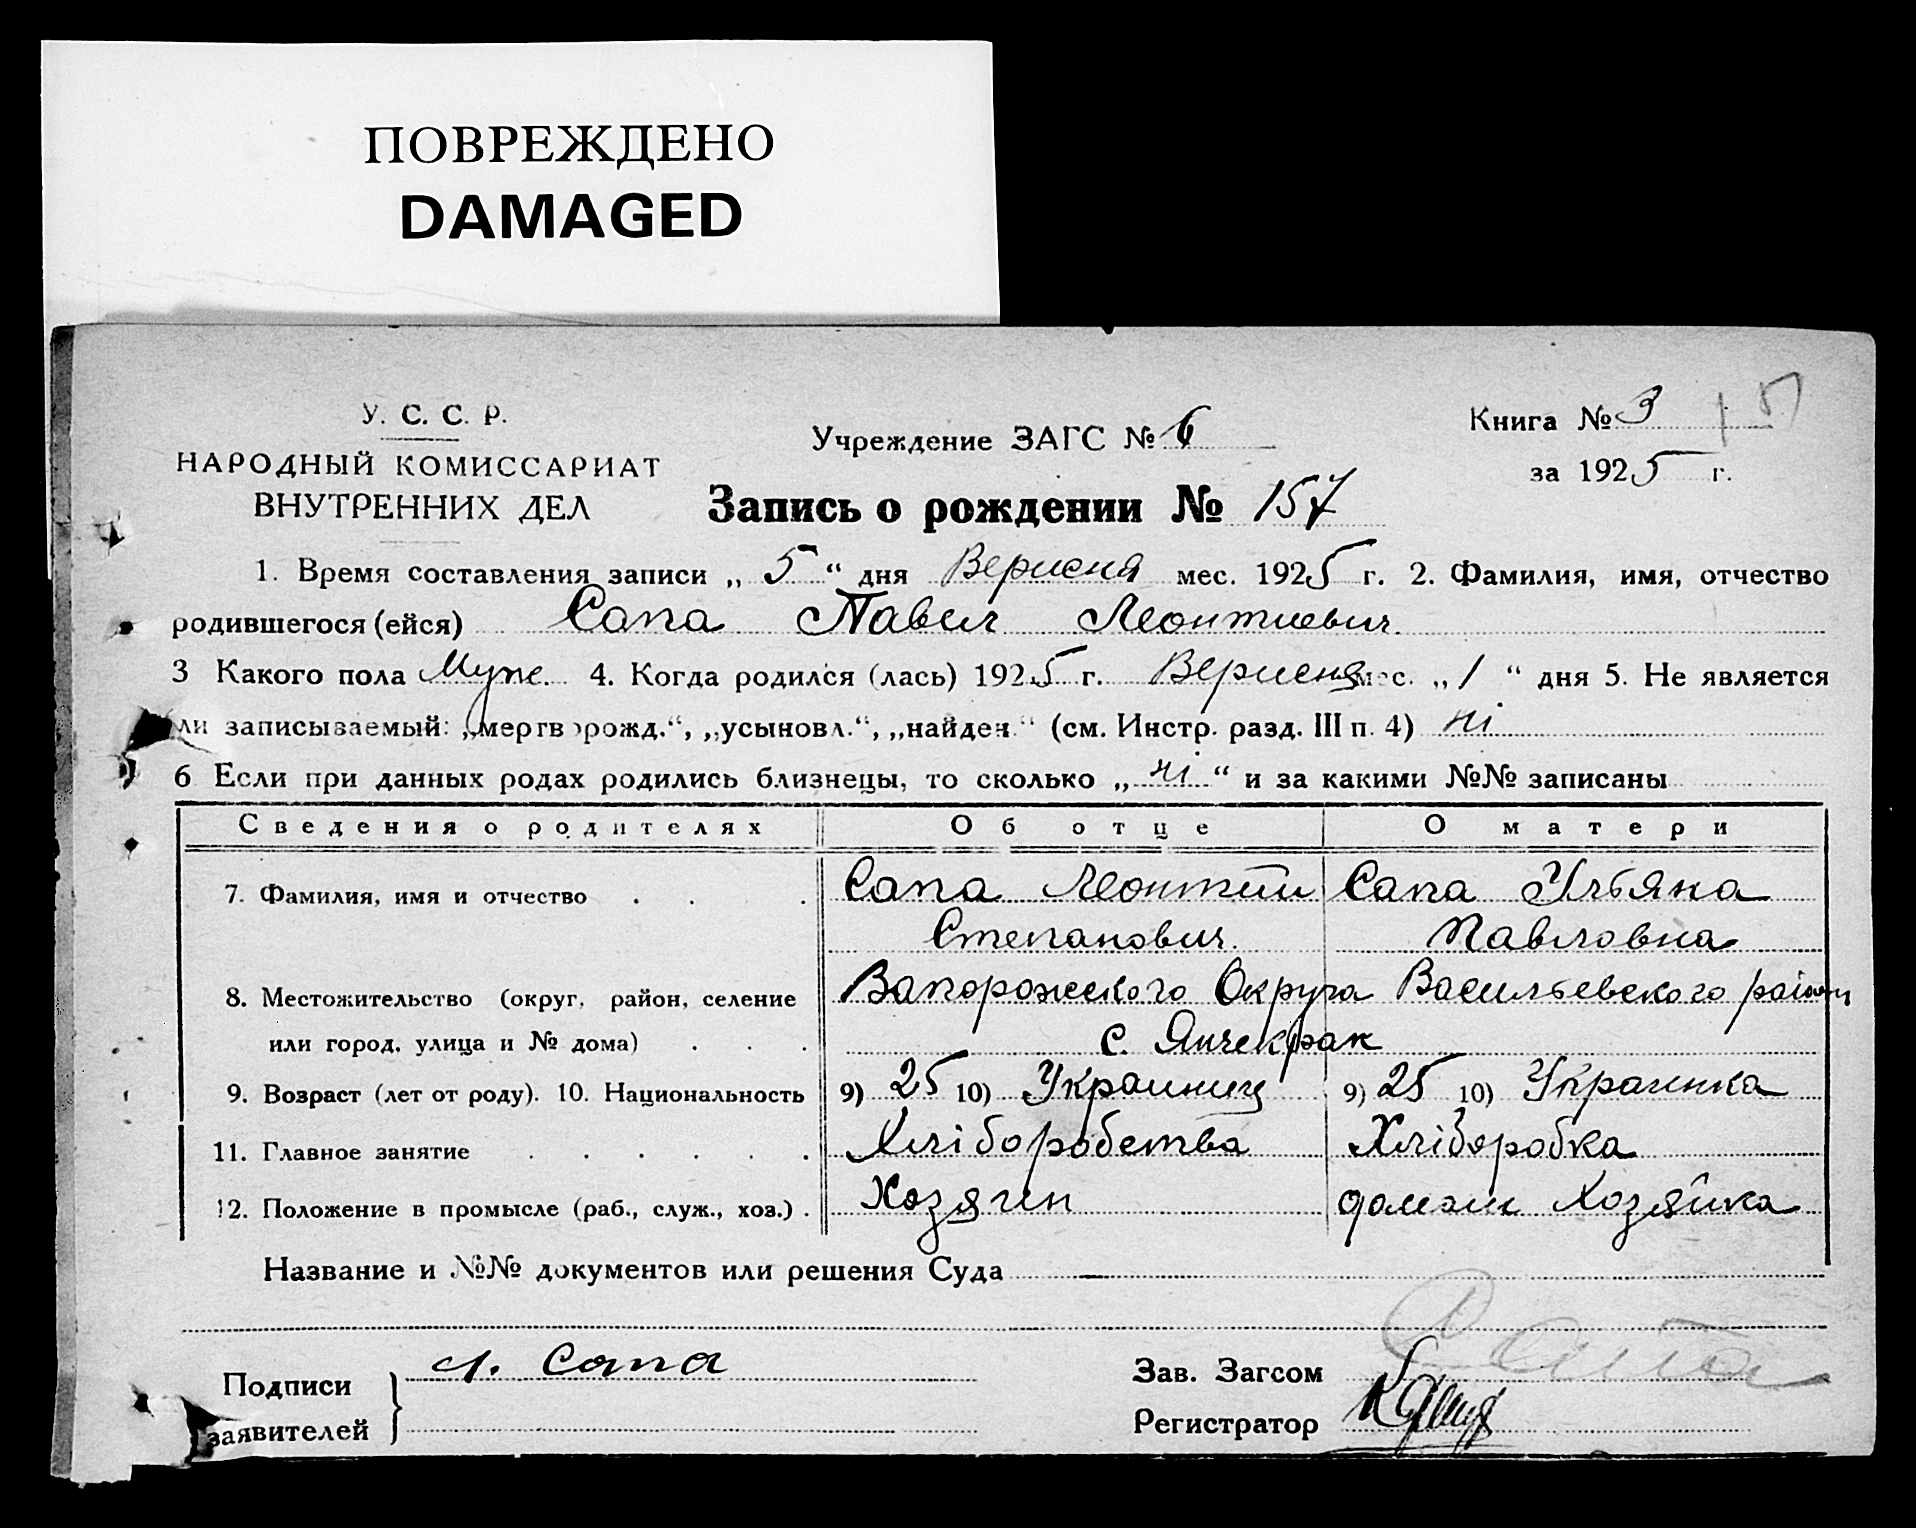 ПОВРЕЖДЕНО
DAMAGED
У. С. С. Р.
НАРОДНЫЙ КОМИССАРИАТ
ВНУТРЕННИХ ДЕЛ
Учреждение ЗАГС № 6
Книга № 3
за 1925 г.
Запись о рождении № 157
1. Время составления записи „ 5 “ дня Вересня мес. 1925 г. 2. Фамилия, имя, отчество
родившегося (ейся) Сапа Павел Леонтиевич
3 Какого пола Муж. 4. Когда родился (лась) 1925 г. Вересня мес. „ 1 “ дня 5. Не является
ли записываемый: „мертворожд.“, „усыновл.“, „найден.“ (см. Инстр. разд. III п. 4) ні
6 Если при данных родах родились близнецы, то сколько „ ні “ и за какими №№ записаны
Сведения о родителях Об отце О матери
7. Фамилия, имя и отчество . . . Сапа Леонтий Сапа Ульяна
Степанович Павловна
8. Местожительство (округ, район, селение Запорожского Округа Васильевского району
или город, улица и № дома) . . . с. Янчекрак
9. Возраст (лет от роду). 10. Национальность 9) 25 10) Украинец 9) 25 10) Украинка
11. Главное занятие . . . . . . Хліборобства Хліборобка
12. Положение в промысле (раб., служ., хоз.) . Хозяин домаш Хозяйка
Название и №№ документов или решения Суда —
Подписи
заявителей
Л. Сапа
Зав. Загсом
Регистратор